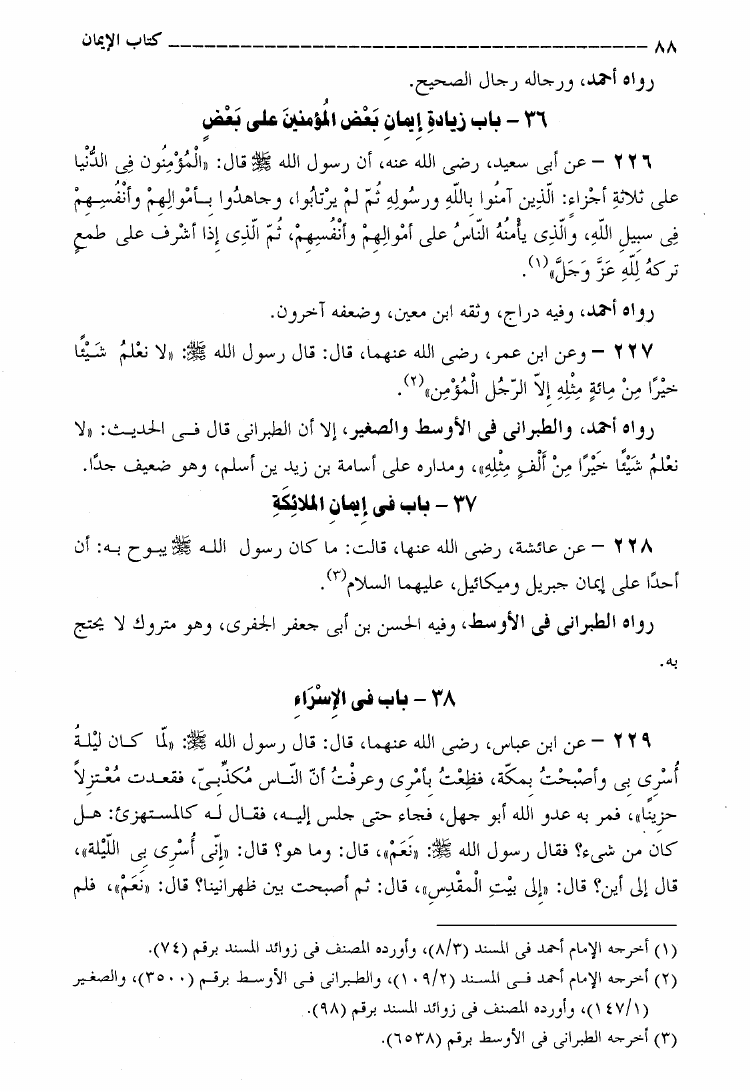 ٨٨ ــــــــــــــــــــــــــــــــــــــــــــــــ كتاب الإيمان
رواه أحمد، ورجاله رجال الصحيح.
٣٦ – باب زيادةِ إيمانِ بَعْضِ المُؤمنينَ على بَعْضٍ
٢٢٦ – عن أبى سعيد، رضى الله عنه، أن رسول الله ﷺ قال: «الْمُؤْمِنُون فِى الدُّنْيا
على ثلاثةِ أجْزاءٍ: الَّذِين آمنُوا باللَّهِ ورسُولِهِ ثُمّ لمْ يرْتابُوا، وجاهدُوا بـأمْوالِهِمْ وأنْفُسِـهِمْ
فِى سبِيلِ اللَّهِ، والَّذِى يأْمنُهُ النّاسُ على أمْوالِهِمْ وأنْفُسِهِمْ، ثُمّ الَّذِى إذا أشْرف على طمعٍ
تركهُ لِلّهِ عَزَّ وَجَلَّ»(١).
رواه أحمد، وفيه دراج، وثقه ابن معين، وضعفه آخرون.
٢٢٧ – وعن ابن عمر، رضى الله عنهما، قال: قال رسول الله ﷺ: «لا نعْلمُ شَـيْئًا
خيْرًا مِنْ مِائةٍ مِثْلِهِ إلاّ الرّجُل الْمُؤْمِن»(٢).
رواه أحمد، والطبرانى فى الأوسط والصغير، إلا أن الطبرانى قال فـى الحديـث: «لا
نعْلمُ شَيْئًا خيْرًا مِنْ أَلْفٍ مِثْلِهِ»، ومداره على أسامة بن زيد ين أسلم، وهو ضعيف جدًا.
٣٧ – باب فى إيمانِ الملائِكَةِ
٢٢٨ – عن عائشة، رضى الله عنها، قالت: ما كان رسول اللـه ﷺ يبـوح بـه: أن
أحدًا على إيمان جبريل وميكائيل، عليهما السلام(٣).
رواه الطبرانى فى الأوسط، وفيه الحسن بن أبى جعفر الجفرى، وهو متروك لا يحتج
به.
٣٨ – باب فى الإِسْرَاءِ
٢٢٩ – عن ابن عباس، رضى الله عنهما، قال: قال رسول الله ﷺ: «لمّا كـان ليْلـةُ
أُسْرِى بِى وأصْبحْتُ بِمكّة، فظِعْتُ بِأمْرِى وعرفْتُ أنّ النّـاس مُكذِّبِـىّ، فقعدت مُعْـتزِلاً
حزِينًا»، فمر به عدو الله أبو جهل، فجاء حتى جلس إليـه، فقـال لـه كالمستهزئ: هـل
كان من شىء؟ فقال رسول الله ﷺ: «نَعَمْ»، قال: وما هو؟ قال: «إنِّى أُسْرِى بِى اللّيْلة»،
قال إلى أين؟ قال: «إلى بيْتِ الْمقْدِسِ»، قال: ثم أصبحت بين ظهرانينا؟ قال: «نَعَمْ»، فلم
(١) أخرجه الإمام أحمد فى المسند (٨/٣)، وأورده المصنف فى زوائد المسند برقم (٧٤).
(٢) أخرجه الإمام أحمد فـى المسـند (١٠٩/٢)، والطـبرانى فـى الأوسـط برقـم (٣٥٠٠)، والصغـير
(١٤٧/١)، وأورده المصنف فى زوائد المسند برقم (٩٨).
(٣) أخرجه الطبرانى فى الأوسط برقم (٦٥٣٨).